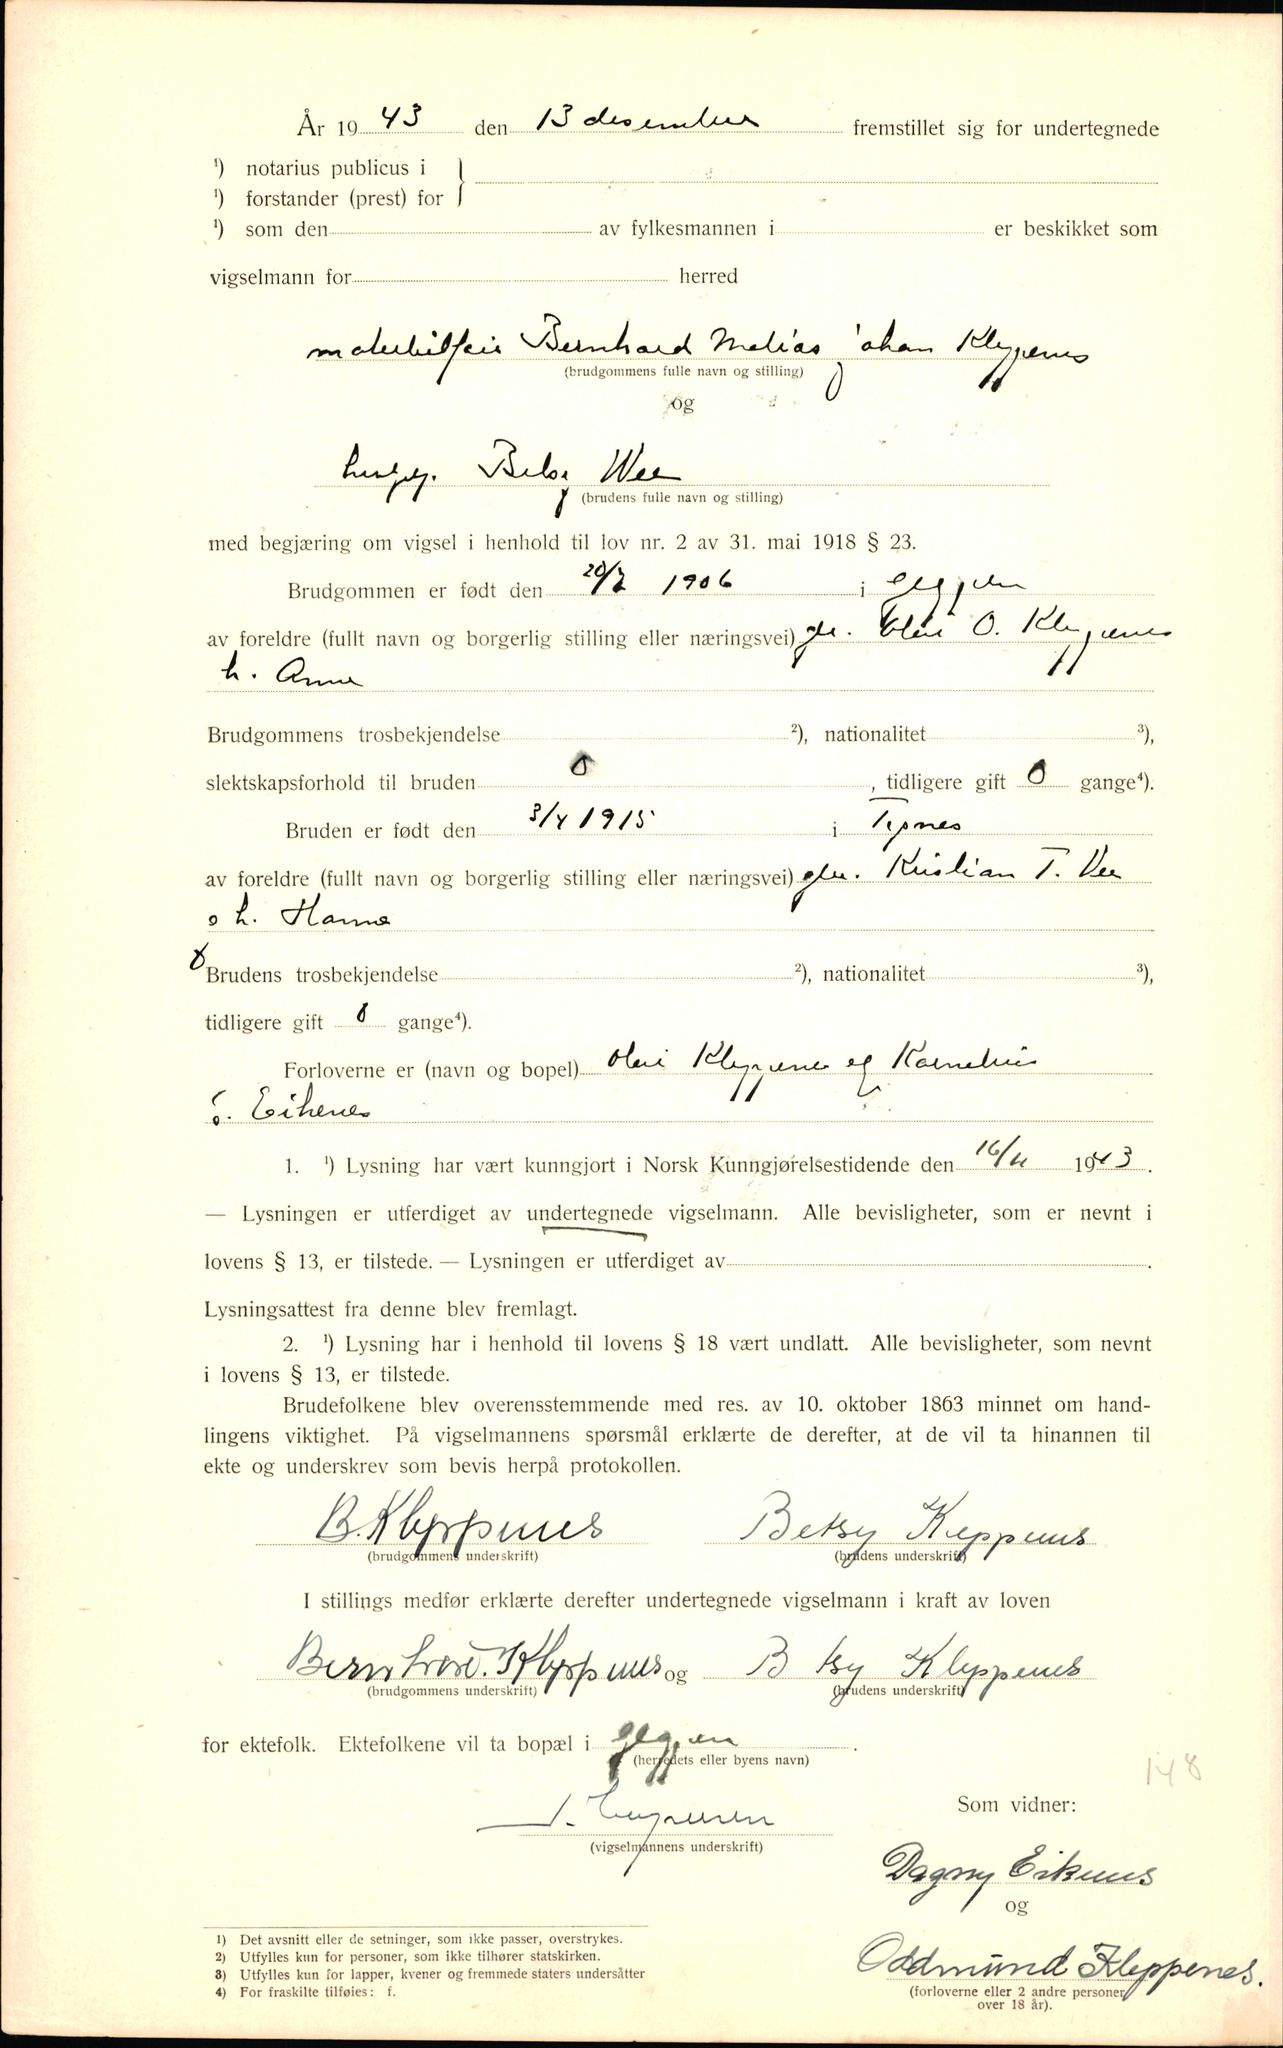 År 19 43 den 13 desember fremstillet sig for undertegnede
¹) notarius publicus i
¹) forstander (prest) for
¹) som den av fylkesmannen i er beskikket som
vigselmann for herred
Bernhard Matias Johan Kleppenes
(brudgommens fulle navn og stilling)
og
Betsy Vee
(brudens fulle navn og stilling)
med begjæring om vigsel i henhold til lov nr. 2 av 31. mai 1918 § 23.
Brudgommen er født den 20/7 1906 i
av foreldre (fullt navn og borgerlig stilling eller næringsvei) O. Kleppenes
h. Anna
Brudgommens trosbekjendelse ²), nationalitet ³),
slektskapsforhold til bruden 0, tidligere gift 0 gange⁴).
Bruden er født den 3/4 1915 i
av foreldre (fullt navn og borgerlig stilling eller næringsvei) Kristian T. Vee
o h. Hanna
Brudens trosbekjendelse ²), nationalitet ³),
tidligere gift 0 gange⁴).
Forloverne er (navn og bopel) Kleppenes og Kornelius
Eikenes
1. ¹) Lysning har vært kunngjort i Norsk Kunngjørelsestidende den 16/11 1943.
— Lysningen er utferdiget av undertegnede vigselmann. Alle bevisligheter, som er nevnt i
lovens § 13, er tilstede. — Lysningen er utferdiget av .
Lysningsattest fra denne blev fremlagt.
2. ¹) Lysning har i henhold til lovens § 18 vært undlatt. Alle bevisligheter, som nevnt
i lovens § 13, er tilstede.
Brudefolkene blev overensstemmende med res. av 10. oktober 1863 minnet om hand-
lingens viktighet. På vigselmannens spørsmål erklærte de derefter, at de vil ta hinannen til
ekte og underskrev som bevis herpå protokollen.
B. Kleppenes Betsy Kleppenes
(brudgommens underskrift) (brudens underskrift)
I stillings medfør erklærte derefter undertegnede vigselmann i kraft av loven
Bernhard. Kleppenes og Betsy Kleppenes
(brudgommens underskrift) (brudens underskrift)
for ektefolk. Ektefolkene vil ta bopæl i .
(herredets eller byens navn)
148
Som vidner:
(vigselmannens underskrift)
Dagny Eikenes
og
Oddmund Kleppenes.
(forloverne eller 2 andre personer
over 18 år).
1) Det avsnitt eller de setninger, som ikke passer, overstrykes.
2) Utfylles kun for personer, som ikke tilhører statskirken.
3) Utfylles kun for lapper, kvener og fremmede staters undersåtter
4) For fraskilte tilføies: f.